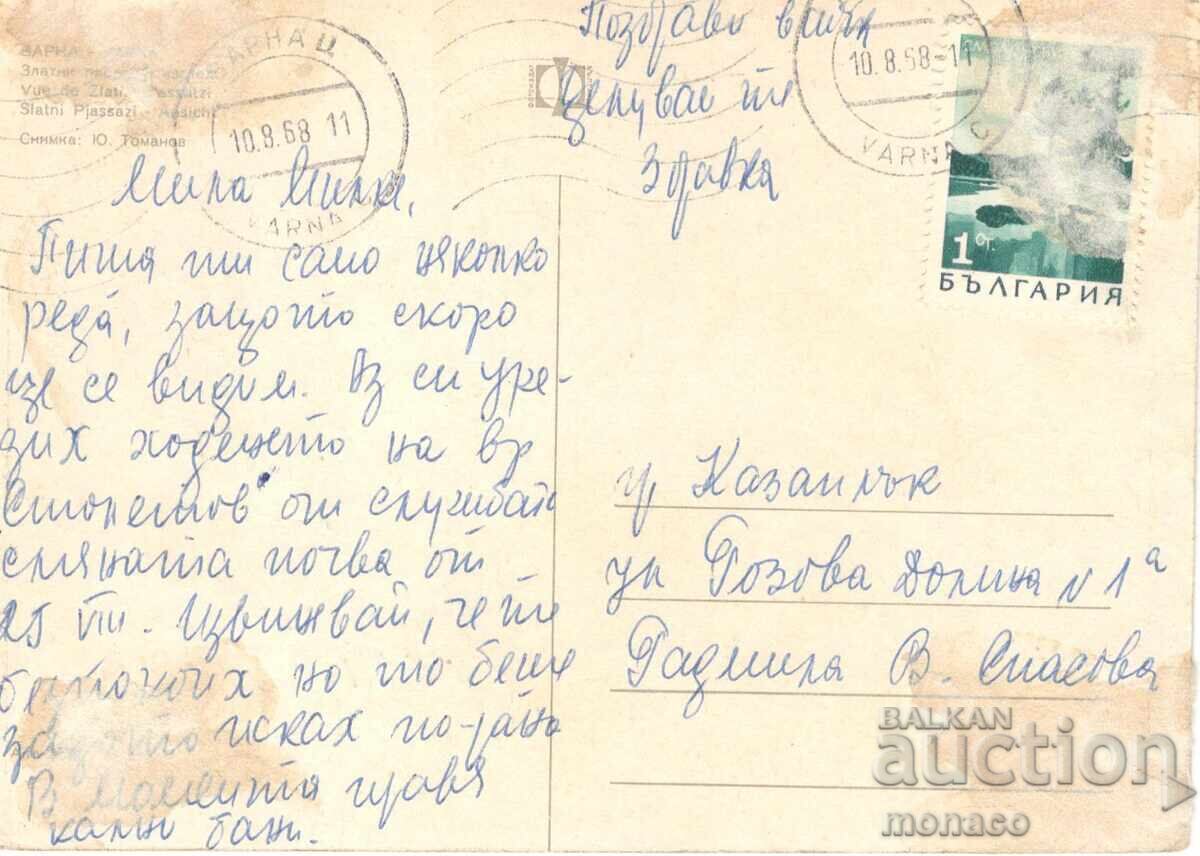 ВАРНА
Златни
Vue de Zlati
Slatni Pjassazi - Ansicht
Снимка: Ю. Томанов
ВАРНА Ц
10.8.68 11
VARNA
Мила Милке,
Пиша ти само няколко
реда, защото скоро
ще се видим. Аз си уре-
дих ходенето на вр
Столетов от службата
смяната почва от
25 VIII. Извинявай, че те
безпокоих но то беше
защото исках по-рано
В момента правя
кални бани.
Поздрави всички
Целувам те
Здравка
10.8.68-11
VARNA
1 Ст.
БЪЛГАРИЯ
гр. Казанлък
ул Розова Долина N 1а
Радмила В. Спасова
BALKAN
auction
monaco